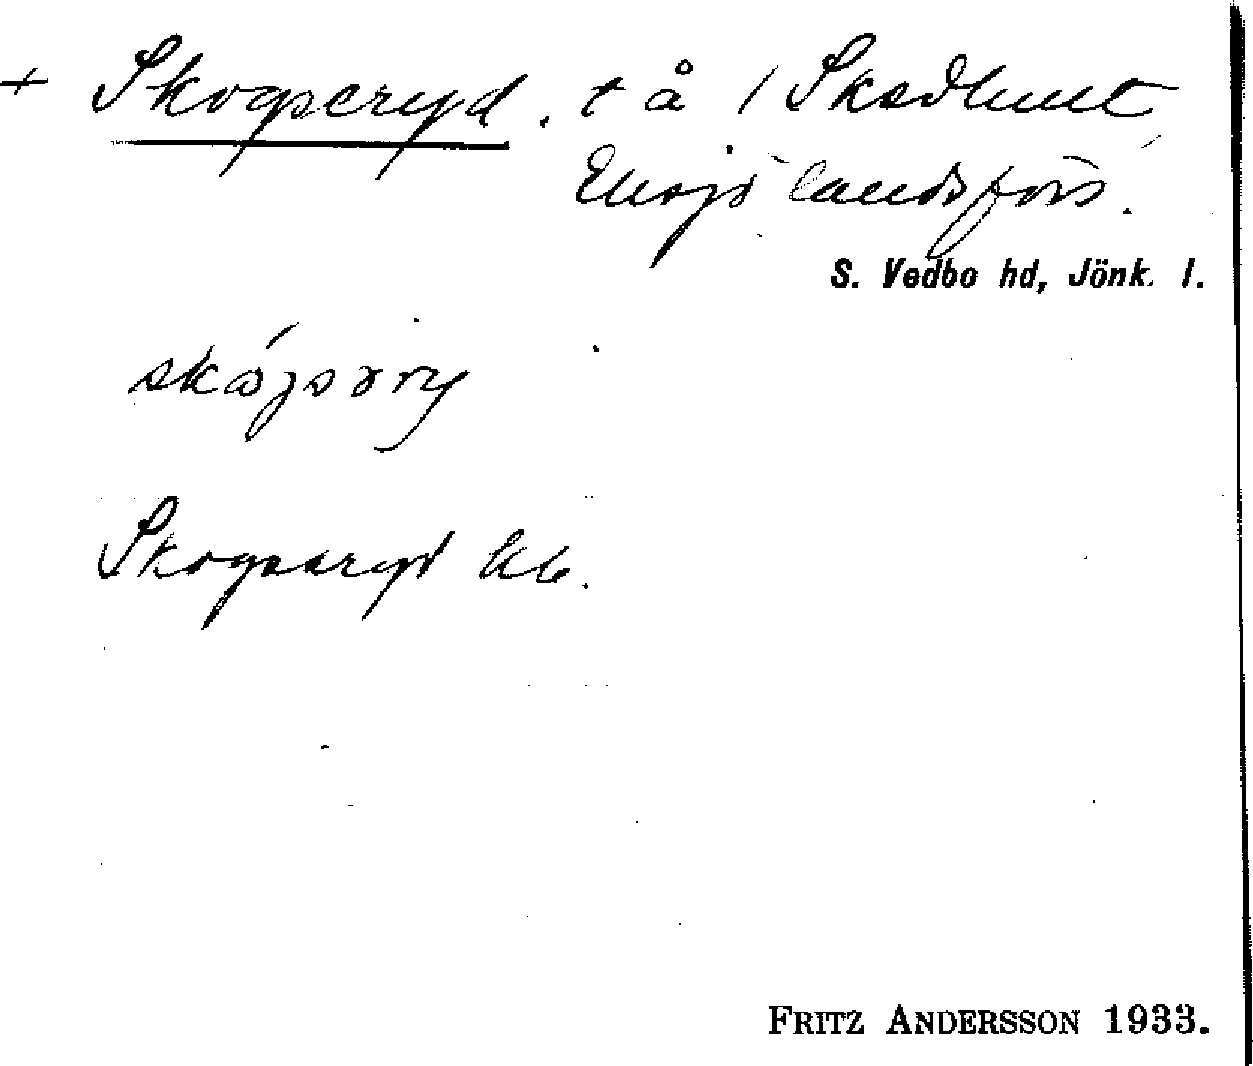 + Skogseryd. t å 1 Skedhult
landsförs.
S. Vedbo hd, Jönk. l.
skógsəry
Skogseryd
FRITZ ANDERSSON 1933.